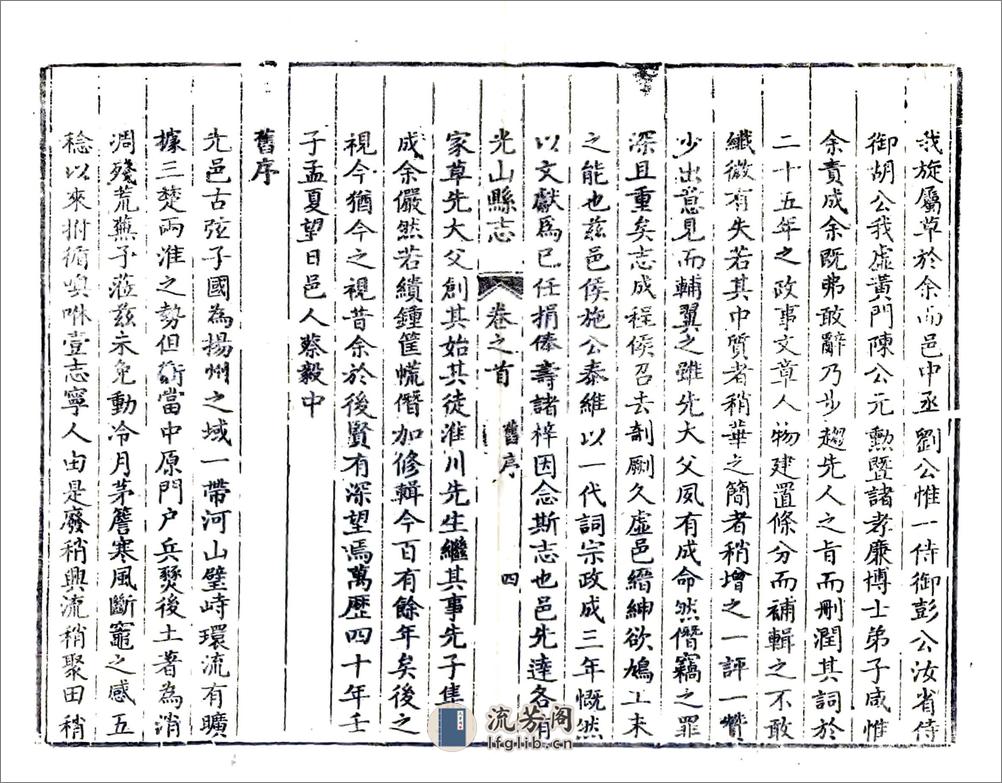 我旋屬草於余而邑中丞劉公惟一侍御彭公汝省侍
御胡公我虛黃門陳公元勲暨諸孝廉博士弟子咸惟
余責成余既弗敢辭乃步趨先人之旨而刪潤其詞於
二十五年之政事文章人物建置條分而補輯之不敢
纖微有失若其中質者稍華之簡者稍增之一評一贊
少出意見而輔翼之雖先大父夙有成命然僭竊之罪
深且重矣志成程侯召去剞劂久虛邑縉紳欲鳩工未
之能也茲邑侯施公泰維以一代詞宗政成三年慨然
以文獻爲已任捐俸壽諸梓因念斯志也邑先達各有
光山縣志 卷之首 舊序 四
家草先大父創其始其徒淮川先生繼其事先子集
成余儼然若續鍾筐㡆僭加修輯今百有餘年矣後之
視今猶今之視昔余於後賢有深望焉萬歷四十年壬
子孟夏望日邑人蔡毅中
舊序
光邑古弦子國為揚州之域一帶河山壁峙環流有曠
據三楚兩淮之勢但衝當中原門户兵燹後土著為消
凋殘荒蕪予蒞茲未免動冷月茅簷寒風斷竈之感五
稔以來拊循噢咻壹志寧人由是廢稍興流稍聚田稍
流芳阁
lfglib.cn